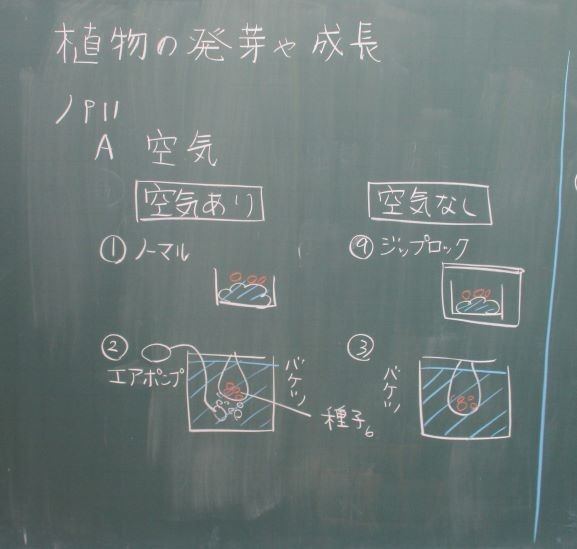 植物の発芽や成長
ノP11
A 空気
空気あり
空気なし
① ノーマル
④ ジップロック
②
エアポンプ
バケツ
種子6
③
バケツ